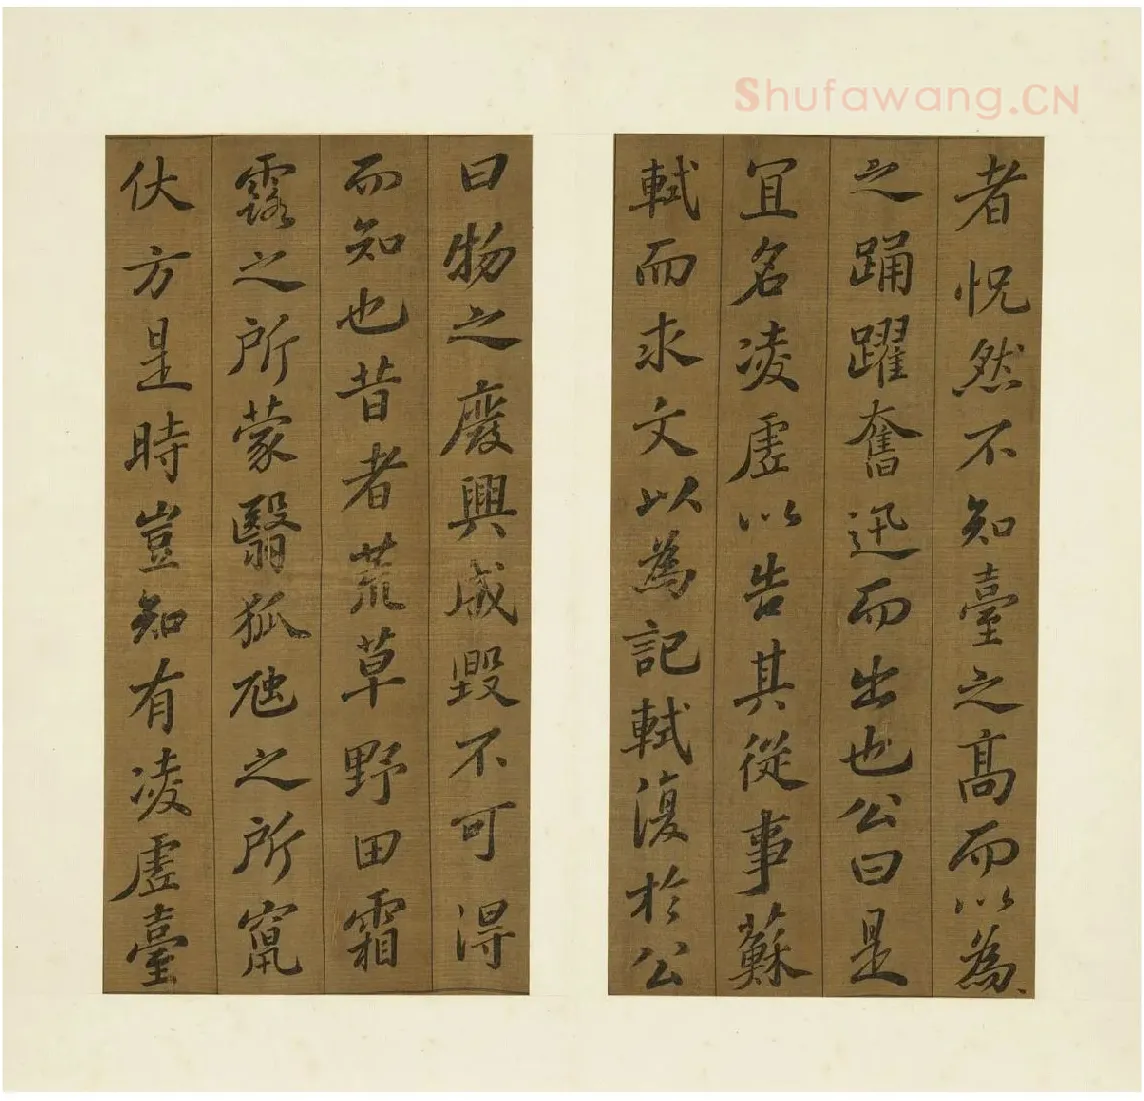 Shufawang.CN
者怳然不知臺之高而以為
之踊躍奮迅而出也公曰是
宜名凌虛以告其從事蘇
軾而求文以為記軾復於公
曰物之廢興成毀不可得
而知也昔者荒草野田霜
露之所蒙翳狐虺之所竄
伏方是時豈知有凌虛臺